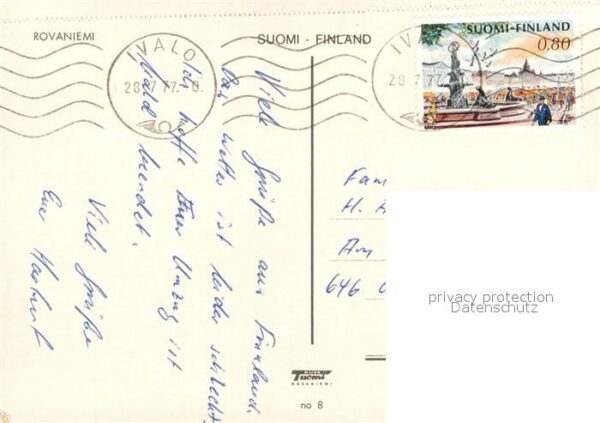 ROVANIEMI
SUOMI - FINLAND
IVALO
28.7.77
IVALO
28.7.77
SUOMI-FINLAND
0,80
Viele Grüße aus Finnland.
Das Wetter ist leider schlecht.
Ich hoffe Euer Umzug ist
bald beendet.
Viele Grüße
Euer
Fam
H.
Am
646
privacy protection
Datenschutz
KUVA
Tuomi
ROVANIEMI
no 8